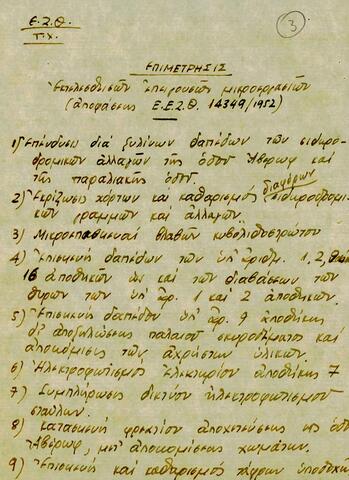 Ε.Ζ.Θ.
Τ.Χ.
3
ΕΠΙΜΕΤΡΗΣΙΣ
Εκτελεσθεισών επειγουσών μικροεργασιών
(αποφάσεως Ε.Ε.Ζ.Θ. 14349/1952)
1) Επένδυσις διά ξυλίνων δαπέδων των σιδηρο-
δρομικών αλλαγών της οδού Αβέρωφ και
της παραλιακής οδού.
2) Εκρίζωσις χόρτων και καθαρισμός διαφόρων σιδηροδρομι-
κών γραμμών και αλλαγών.
3) Μικροεπισκευαί βλαβών κυβολιθοστρώτου
4) Επισκευή δαπέδων των υπ' αριθμ. 1, 2,
16 αποθηκών ως και των διαβάσεων των
θυρών των υπ' αρ. 1 και 2 αποθηκών.
5) Επισκευή δαπέδου υπ' αρ. 9 αποθήκης
δι' αποξηλώσεως παλαιού σκυροδέματος και
αποκομίσεως των αχρήστων υλικών.
6) Ηλεκτροφωτισμός κλητηρίου αποθήκης 7
7) Συμπλήρωσις δικτύου ηλεκτροφωτισμού
σταύλων.
8) Κατασκευή φρεατίου αποχετεύσεως της οδού
Αβέρωφ, μετ' αποκομίσεως χωμάτων.
9) Επισκευή και καθαρισμός